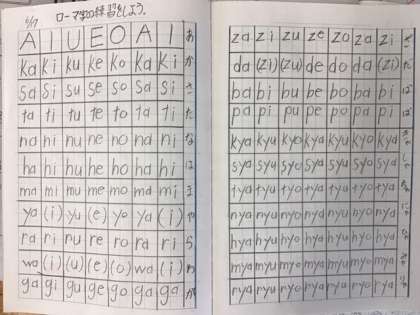 6/7 ローマ字の練習をしよう。
A I U E O A I あ
ka ki ku ke ko ka ki か
sa si su se so sa si さ
ta ti tu te to ta ti た
na ni nu ne no na ni な
ha hi hu he ho ha hi は
ma mi mu me mo ma mi ま
ya (i) yu (e) yo ya (i) や
ra ri ru re ro ra ri ら
wa (i) (u) (e) (o) wa (i) わ
ga gi gu ge go ga ga が
za zi zu ze zo za zi ざ
da (zi) (zu) de do da (zi) だ
ba bi bu be bo ba bi ば
pa pi pu pe po pa pi ぱ
kya kyu kyo kya kyu kyo kya
sya syu syo sya syu syo sya
tya tyu tyo tya tyu tyo tya
nya nyu nyo nya nyu nyo nya
hya hyu hyo hya hyu hyo hya
mya myu myo mya myu myo mya
rya ryu ryo rya ryu ryo rya